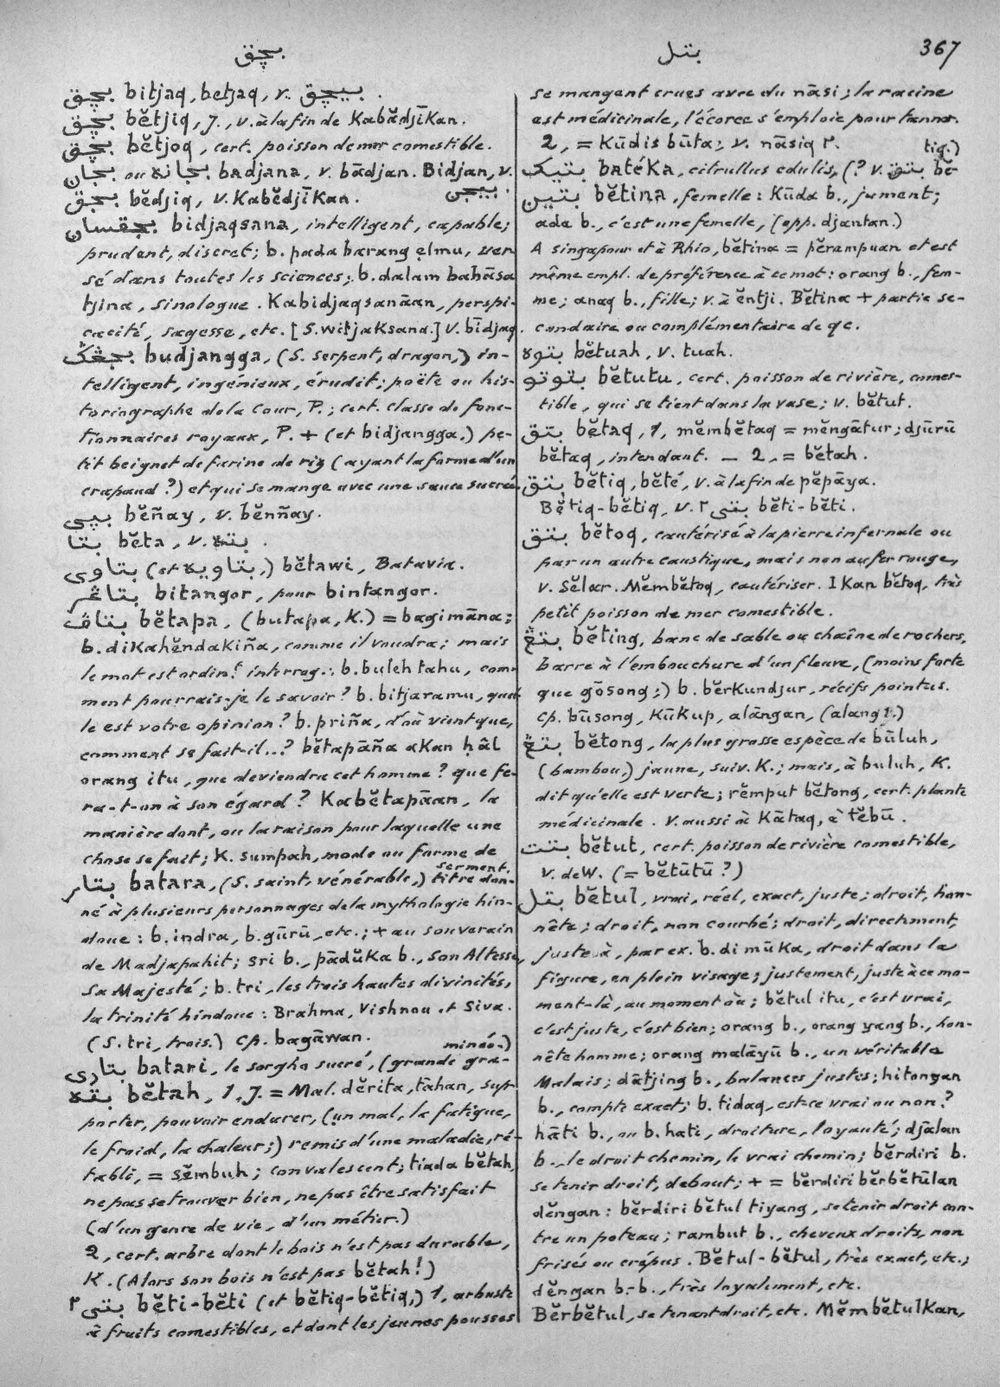 بچق
بتل
367
بچق bitjaq, betjaq, v. بيچق .
بچق bĕtjiq, J., v. à la fin de Kabĕdjīkan.
بچق bĕtjoq, cert. poisson de mer comestible.
بجان ou بجانه badjana, v. bādjan. Bidjan, v. بيجي.
بجق bĕdjiq, v. Kabĕdjīkan.
بجقسان bidjaqsana, intelligent, capable;
prudent, discret; b. pada barang elmu, ver-
sé dans toutes les sciences; b. dalam bahāsa
tjina, sinologue. Kabidjaqsanāan, perspi-
cacité, sagesse, etc. [S. witjaksana.] v. bīdjaq.
بجڠݢ budjangga, (S. serpent, dragon,) in-
telligent, ingénieux, érudit; poëte ou his-
toriographe de la Cour, P.; cert. classe de fonc-
tionnaires royaux, P. + (et bidjangga.) pe-
tit beignet de farine de riz (ayant la forme d'un
crapaud?) et qui se mange avec une sauce sucrée.
بچي bĕñay, v. bĕnñay.
بتا bĕta, v. بته .
بتاوي (et بتاويه,) bĕtawi, Batavia.
بتاڠر bitangor, pour bintangor.
بتاڤ bĕtapa, (butapa, K.) = bagimāna;
b. dikahĕndakiña, comme il voudra; mais
le mot est ordin! interrog.: b. buleh tahu, com-
ment pourrais-je le savoir? b. bitjaramu, quel-
le est votre opinion? b. priña, d'où vient que,
comment se fait-il...? bĕtapāña akan hāl
orang itu, que deviendra cet homme? que fe-
ra-t-on à son égard? Kabĕtapāan, la
manière dont, ou la raison pour laquelle une
chose se fait; K. sumpah, mode ou forme de serment.
بتار batara, (S. saint, vénérable,) titre don-
né à plusieurs personnages de la mythologie hin-
doue: b. indra, b. gūrū, etc.; + au souverain
de Madjapahit; sri b., pādŭka b., Son Altesse,
Sa Majesté; b. tri, les trois hautes divinités,
la trinité hindoue: Brahma, Vishnou et Siva.
(S. tri, trois.) cp. bagāwan.
بتاري batari, le sorgho sucré, (grande graminée.)
بته bĕtah, 1, J. = Mal. dĕrita, tahan, sup-
porter, pouvoir endurer, (un mal, la fatigue,
le froid, la chaleur;) remis d'une maladie, ré-
tabli, = sĕmbuh; convalescent; tiada bĕtah,
ne pas se trouver bien, ne pas être satisfait
(d'un genre de vie, d'un métier.)
2, cert. arbre dont le bois n'est pas durable,
K. (Alors son bois n'est pas bĕtah!)
بتي٢ bĕti-bĕti (et bĕtiq-bĕtiq,) 1, arbuste
à fruits comestibles, et dont les jeunes pousses
se mangent crues avec du nāsi; la racine
est médicinale, l'écorce s'emploie pour tanner.
2, = Kūdis būta; v. nāsiq ٢.
بتيک batéka, citrullus edulis, (? v. بتق bĕtiq.)
بتين bĕtina, femelle: Kūda b., jument;
ada b., c'est une femelle, (opp. djantan.)
A Singapour et à Rhio, bĕtina = pĕrampuan et est
même empl. de préférence à ce mot: orang b., fem-
me; anaq b., fille; v. à ĕntji. Bĕtina + partie se-
condaire ou complémentaire de qc.
بتوه bĕtuah, v. tuah.
بتوتو bĕtutu, cert. poisson de rivière, comes-
tible, qui se tient dans la vase; v. bĕtut.
بتق bĕtaq, 1, mĕmbĕtaq = mĕngātur; djūrū
bĕtaq, intendant. — 2, = bĕtah.
بتق bĕtiq, bĕté, v. à la fin de pĕpāya.
Bĕtiq-bĕtiq, v. بتي٢ bĕti-bĕti.
بتق bĕtoq, cautérisé à la pierre infernale ou
par un autre caustique, mais non au fer rouge,
v. sĕlar. Mĕmbĕtoq, cautériser. Ikan bĕtoq, très
petit poisson de mer comestible.
بتڠ bĕting, banc de sable ou chaîne de rochers,
barre à l'embouchure d'un fleuve, (moins forte
que gōsong;) b. bĕrkundjur, récifs pointus.
cp. būsong, Kūkup, alāngan, (alang ٢.)
بتڠ bĕtong, la plus grosse espèce de būluh,
(bambou,) jaune, suiv. K.; mais, à buluh, K.
dit qu'elle est verte; rĕmput bĕtong, cert. plante
médicinale. v. aussi à Kātaq, à tĕbū.
بتت bĕtut, cert. poisson de rivière comestible,
v. de W. (= bĕtūtū?)
بتل bĕtul, vrai, réel, exact, juste; droit, hon-
nête; droit, non courbé; droit, directement,
juste à, par ex. b. di mūka, droit dans la
figure, en plein visage; justement, juste à ce mo-
ment-là, au moment où; bĕtul itu, c'est vrai,
c'est juste, c'est bien; orang b., orang yang b., hon-
nête homme; orang malāyū b., un véritable
Malais; dātjing b., balances justes; hitongan
b., compte exact; b. tidaq, est-ce vrai ou non?
hāti b., ou b. hati, droiture, loyauté; djālan
b., le droit chemin, le vrai chemin; bĕrdiri b.
se tenir droit, debout; + = bĕrdiri bĕrbĕtūlan
dĕngan: bĕrdiri bĕtul tiyang, se tenir droit con-
tre un poteau; rambut b., cheveux droits, non
frisés ou crépus. Bĕtul-bĕtul, très exact, etc.;
dĕngan b.-b., très loyalement, etc.
Bĕrbĕtul, se tenant droit, etc. Mĕmbĕtulkan,